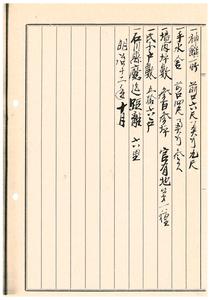 一神離一所 前口六尺 奥行九尺
一手水舎 前口四尺 奥行
一境内坪数 参百参坪 官有地第一種
一氏子戸数 五拾六戸
一石川県庁迄距離 六里
明治十二年十月